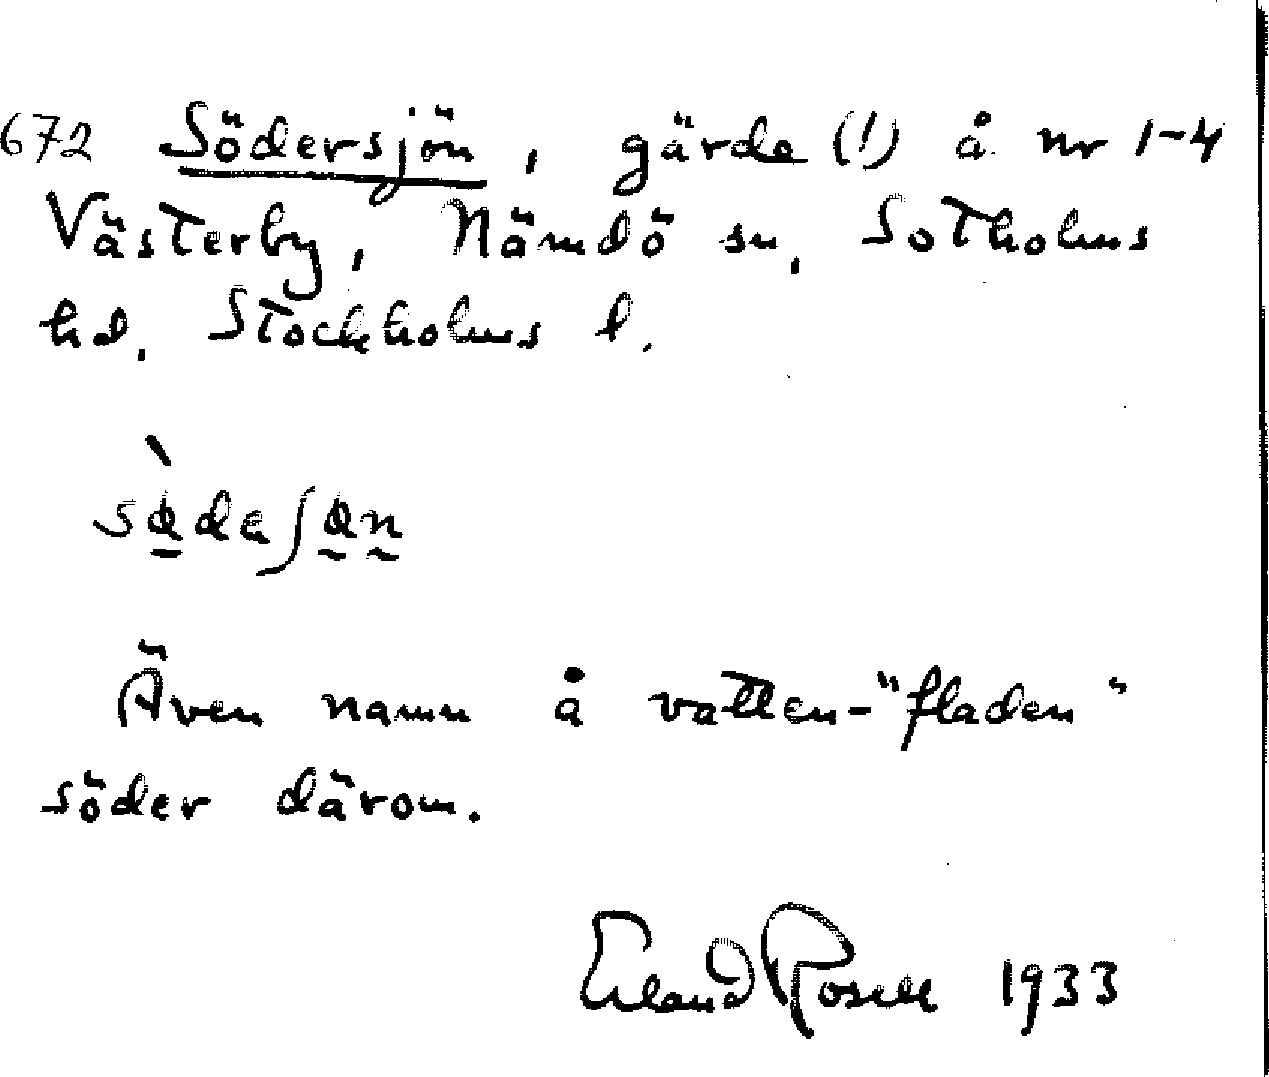 672 Södersjön, gärde (!) å nr 1-4
Västerby, Nämdö sn, Sotholms
hd, Stockholms l.
Även namn å vatten-"fladen"
söder därom.
Erland Rosell 1933